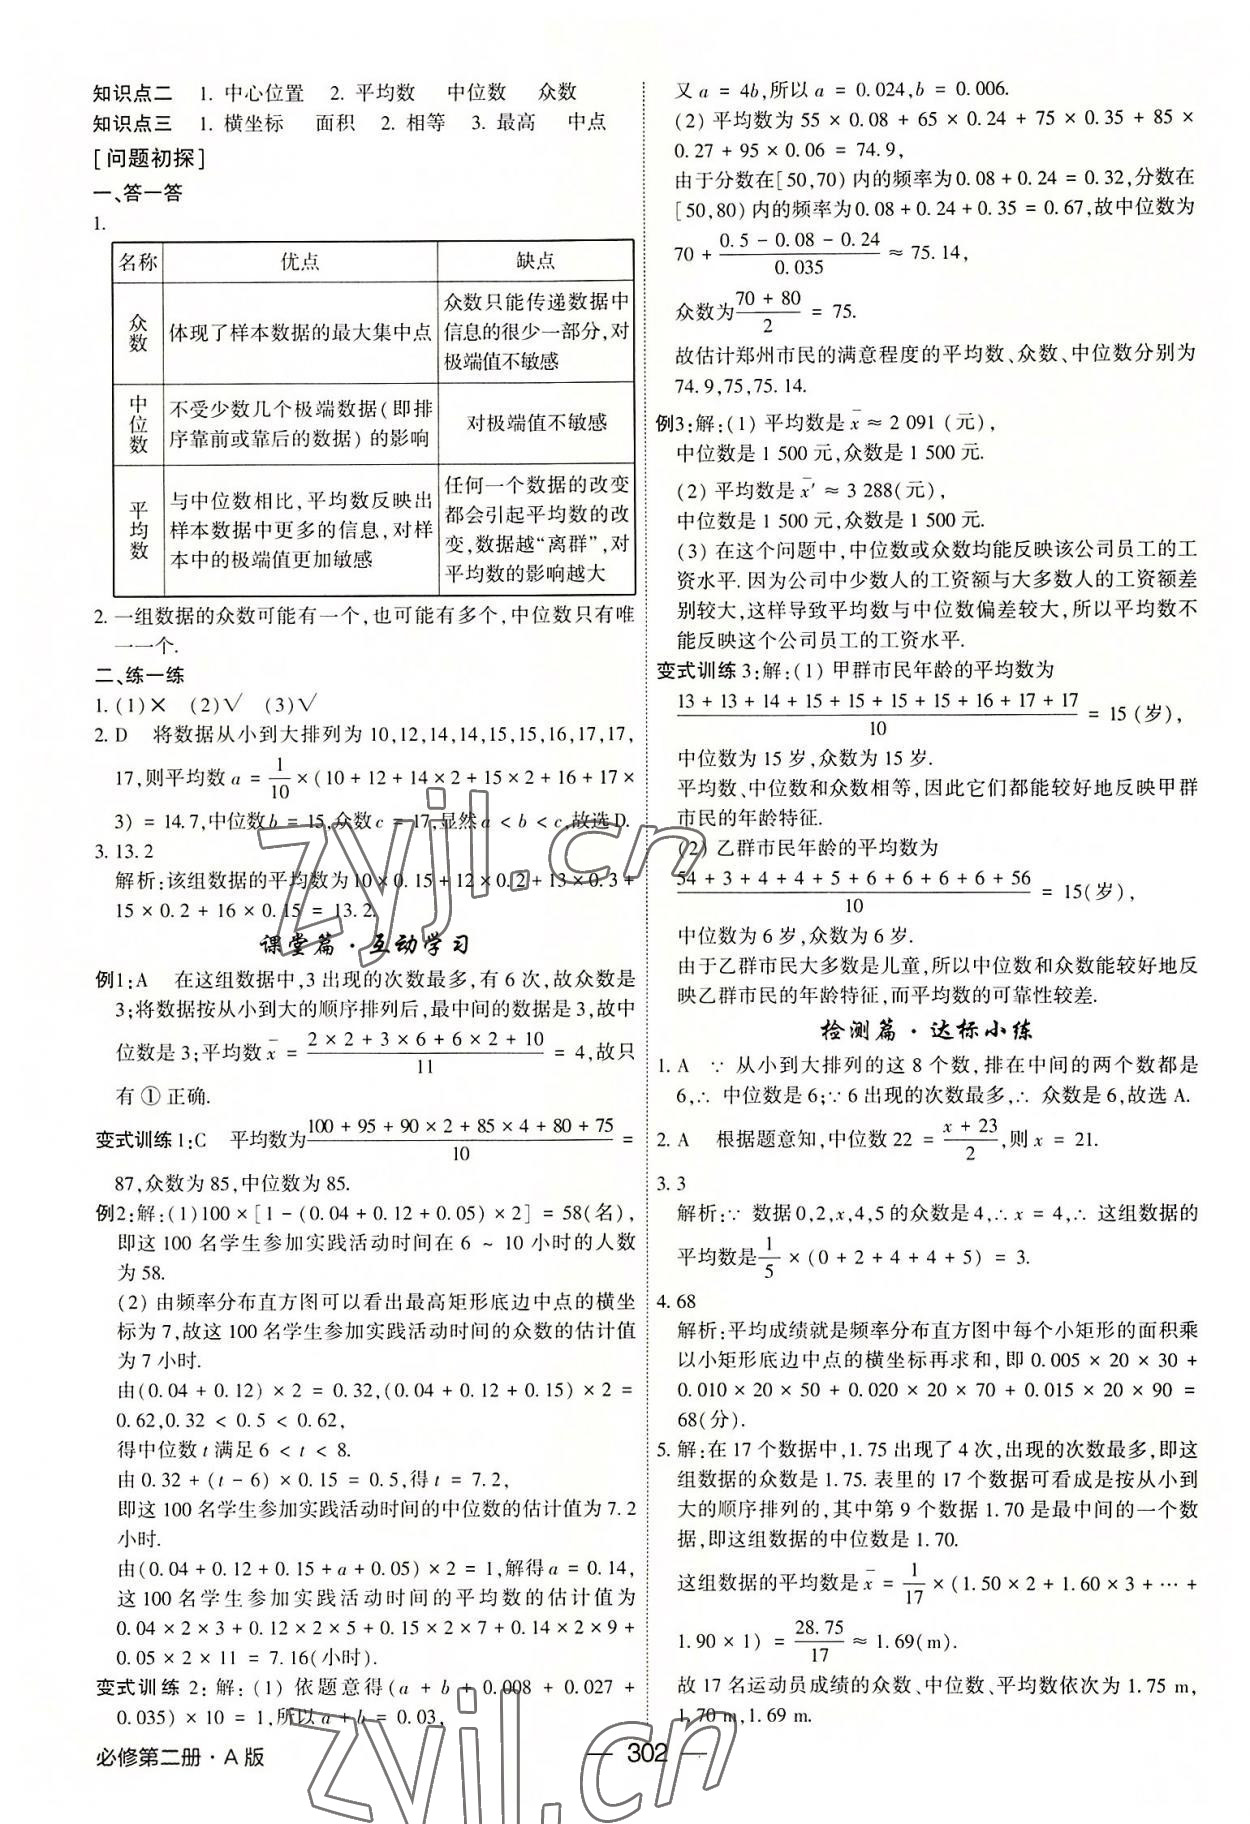 知识点二 1. 中心位置 2. 平均数 中位数 众数
知识点三 1. 横坐标 面积 2. 相等 3. 最高 中点
[问题初探]
一、答一答
1.
名称 优点 缺点
众数 体现了样本数据的最大集中点 众数只能传递数据中信息的很少一部分,对极端值不敏感
中位数 不受少数几个极端数据(即排序靠前或靠后的数据)的影响 对极端值不敏感
平均数 与中位数相比,平均数反映出样本数据中更多的信息,对样本中的极端值更加敏感 任何一个数据的改变都会引起平均数的改变,数据越“离群”,对平均数的影响越大
2. 一组数据的众数可能有一个,也可能有多个,中位数只有唯
一一个.
二、练一练
1. (1)× (2)√ (3)√
2. D 将数据从小到大排列为 10,12,14,14,15,15,16,17,17,
17,则平均数 a = 1/10 ×(10 + 12 + 14 × 2 + 15 × 2 + 16 + 17 ×
3) = 14.7,中位数 b = 15,众数 c = 17,显然 a < b < c,故选 D.
3. 13.2
解析:该组数据的平均数为 10 × 0.15 + 12 × 0.2 + 13 × 0.3 +
15 × 0.2 + 16 × 0.15 = 13.2.
课堂篇·互动学习
例1:A 在这组数据中,3 出现的次数最多,有 6 次,故众数是
3;将数据按从小到大的顺序排列后,最中间的数据是 3,故中
位数是 3;平均数 x̄ = (2 × 2 + 3 × 6 + 6 × 2 + 10)/11 = 4,故只
有①正确.
变式训练1:C 平均数为 (100 + 95 + 90 × 2 + 85 × 4 + 80 + 75)/10 =
87,众数为 85,中位数为 85.
例2:解:(1)100 × [1 - (0.04 + 0.12 + 0.05) × 2] = 58(名),
即这 100 名学生参加实践活动时间在 6 ~ 10 小时的人数
为 58.
(2) 由频率分布直方图可以看出最高矩形底边中点的横坐
标为 7,故这 100 名学生参加实践活动时间的众数的估计值
为 7 小时.
由(0.04 + 0.12) × 2 = 0.32,(0.04 + 0.12 + 0.15) × 2 =
0.62,0.32 < 0.5 < 0.62,
得中位数 t 满足 6 < t < 8.
由 0.32 + (t - 6) × 0.15 = 0.5,得 t = 7.2,
即这 100 名学生参加实践活动时间的中位数的估计值为 7.2
小时.
由(0.04 + 0.12 + 0.15 + a + 0.05) × 2 = 1,解得 a = 0.14,
这 100 名学生参加实践活动时间的平均数的估计值为
0.04 × 2 × 3 + 0.12 × 2 × 5 + 0.15 × 2 × 7 + 0.14 × 2 × 9 +
0.05 × 2 × 11 = 7.16(小时).
变式训练 2:解:(1) 依题意得(a + b + 0.008 + 0.027 +
0.035) × 10 = 1,所以 a + b = 0.03,
又 a = 4b,所以 a = 0.024,b = 0.006.
(2) 平均数为 55 × 0.08 + 65 × 0.24 + 75 × 0.35 + 85 ×
0.27 + 95 × 0.06 = 74.9,
由于分数在[50,70) 内的频率为 0.08 + 0.24 = 0.32,分数在
[50,80) 内的频率为 0.08 + 0.24 + 0.35 = 0.67,故中位数为
70 + (0.5 - 0.08 - 0.24)/0.035 ≈ 75.14,
众数为 (70 + 80)/2 = 75.
故估计郑州市民的满意程度的平均数、众数、中位数分别为
74.9,75,75.14.
例3:解:(1) 平均数是 x̄ ≈ 2 091 (元),
中位数是 1 500 元,众数是 1 500 元.
(2) 平均数是 x̄′ ≈ 3 288(元),
中位数是 1 500 元,众数是 1 500 元.
(3) 在这个问题中,中位数或众数均能反映该公司员工的工
资水平. 因为公司中少数人的工资额与大多数人的工资额差
别较大,这样导致平均数与中位数偏差较大,所以平均数不
能反映这个公司员工的工资水平.
变式训练3:解:(1) 甲群市民年龄的平均数为
(13 + 13 + 14 + 15 + 15 + 15 + 15 + 16 + 17 + 17)/10 = 15 (岁),
中位数为 15 岁,众数为 15 岁.
平均数、中位数和众数相等,因此它们都能较好地反映甲群
市民的年龄特征.
(2) 乙群市民年龄的平均数为
(54 + 3 + 4 + 4 + 5 + 6 + 6 + 6 + 6 + 56)/10 = 15(岁),
中位数为 6 岁,众数为 6 岁.
由于乙群市民大多数是儿童,所以中位数和众数能较好地反
映乙群市民的年龄特征,而平均数的可靠性较差.
检测篇·达标小练
1. A ∵ 从小到大排列的这 8 个数,排在中间的两个数都是
6,∴ 中位数是 6;∵ 6 出现的次数最多,∴ 众数是 6,故选 A.
2. A 根据题意知,中位数 22 = (x + 23)/2,则 x = 21.
3. 3
解析:∵ 数据 0,2,x,4,5 的众数是 4,∴ x = 4,∴ 这组数据的
平均数是 1/5 × (0 + 2 + 4 + 4 + 5) = 3.
4. 68
解析:平均成绩就是频率分布直方图中每个小矩形的面积乘
以小矩形底边中点的横坐标再求和,即 0.005 × 20 × 30 +
0.010 × 20 × 50 + 0.020 × 20 × 70 + 0.015 × 20 × 90 =
68(分).
5. 解:在 17 个数据中,1.75 出现了 4 次,出现的次数最多,即这
组数据的众数是 1.75. 表里的 17 个数据可看成是按从小到
大的顺序排列的,其中第 9 个数据 1.70 是最中间的一个数
据,即这组数据的中位数是 1.70.
这组数据的平均数是 x̄ = 1/17 × (1.50 × 2 + 1.60 × 3 + ⋯ +
1.90 × 1) = 28.75/17 ≈ 1.69(m).
故 17 名运动员成绩的众数、中位数、平均数依次为 1.75 m,
1.70 m,1.69 m.
必修第二册·A版
— 302 —
zyjl.cn
zyjl.cn